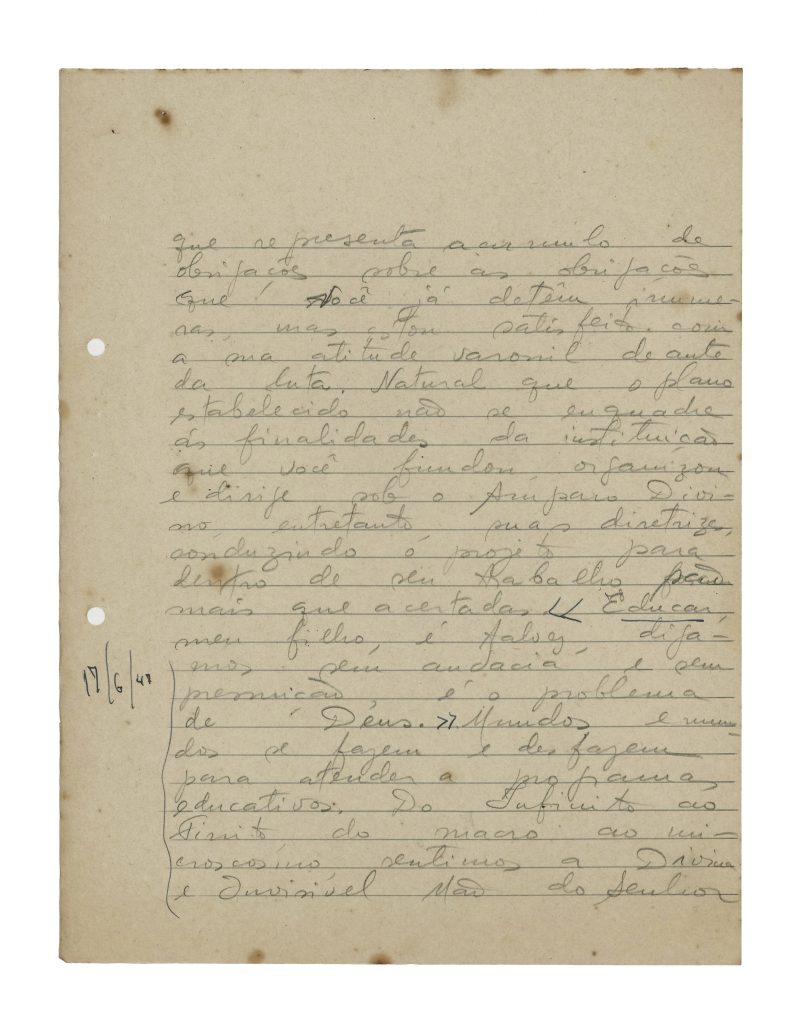 que representa acúmulo de
obrigações sobre as obrigações
que Você já detêm, inúme-
ras, mas estou satisfeito com
a sua atitude varonil deante
da luta. Natural que o plano
estabelecido não se enquadre
ás finalidades da instituição
que você fundou, organizou
e dirige sob o Amparo Divi-
no, entretanto, suas diretrizes,
conduzindo o projeto para
dentro de seu trabalho são
mais que acertadas. << Educar,
meu filho, é talvez, diga-
mos sem audacia e sem
presunção, é o problema
17/6/47
de Deus. >> Mundos e mun-
dos se fazem e desfazem
para atender a programas
educativos. Do Infinito ao
Finito do macro ao mi-
croscosmo, sentimos a Divina
e Invisível Mão do Senhor